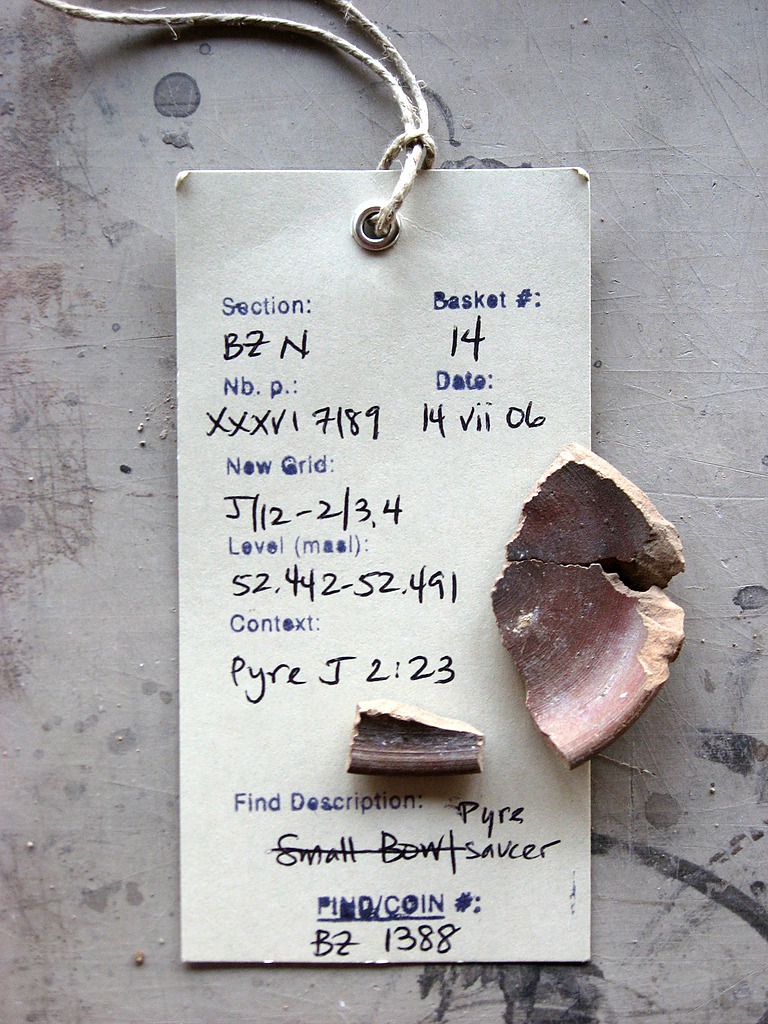 Section: Basket #:
BZ N 14
Nb. p.: Date:
XXXVI 7189 14 vii 06
New Grid:
J/12-2/3,4
Level (masl):
52.442-52.491
Context:
Pyre J 2:23
Find Description: Pyre
Small Bowl saucer
FIND/COIN #:
BZ 1388